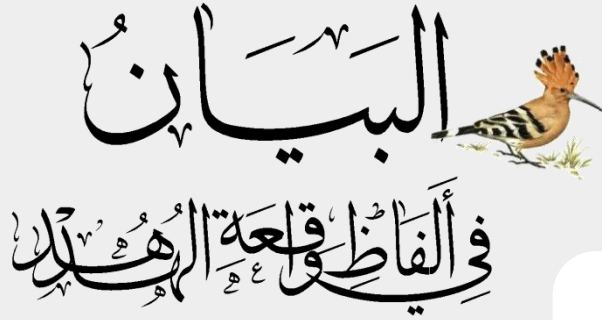 البَيَانُ
فِي أَلفَاظِ وَاقِعَةِ الهُدْهُدْ